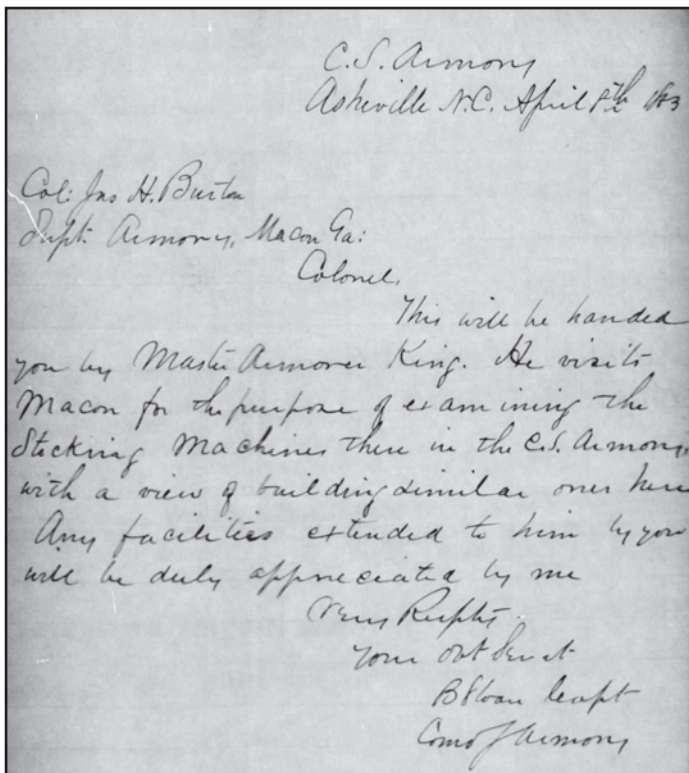 C.S. Armory
Asheville N.C. April 8th 1863
Col: Jas H. Burton
Supt. Armory, Macon Ga:
Colonel,
This will be handed
you by Master Armorer King. He visits
Macon for the purpose of examining the
Stocking Machines there in the C.S. Armory,
with a view of building similar ones here
Any facilities extended to him by you
will be duly appreciated by me
Very Respfly.
Your Obt Servt
B Sloan Capt
Comdg Armory